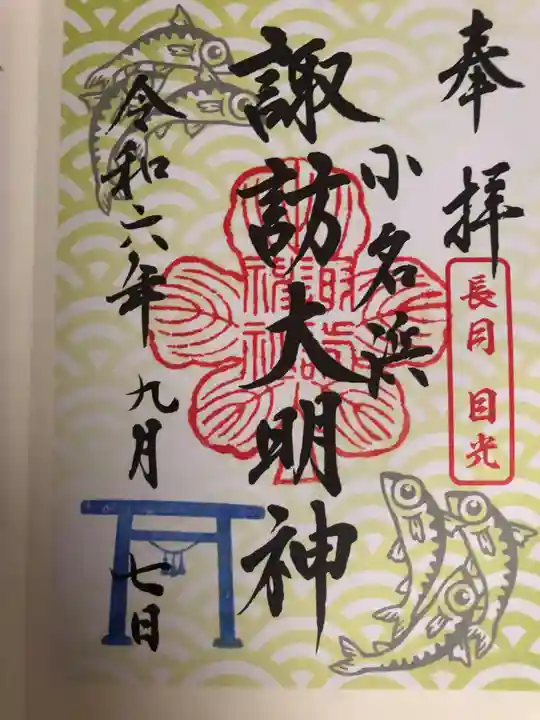 奉拝
長月 目光
小名浜
諏訪大明神
諏訪
禄社
令和六年 九月 七日